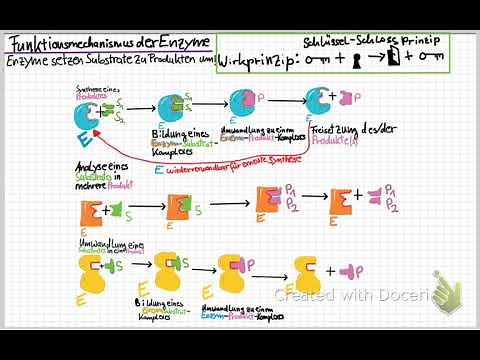 Funktionsmechanismus der Enzyme
Enzyme setzen Substrate zu Produkten um!
Schlüssel-Schloss Prinzip
Wirkprinzip:
Synthese eines
Produktes
S1
S2
E
S1
S2
P
P
Bildung eines
Enzym-Substrat-
Komplexes
Umwandlung zu einem
Enzym-Produkt-Komplex
Freisetzung des/der
Produkte(s)
E wiederverwendbar für erneute Synthese
Analyse eines
Substrates in
mehrere Produkt
E
S
E
S
E
P1
P2
E
P1
P2
Umwandlung eines
Substrates in ein Produkt
E
S
E
S
E
P
E
P
Bildung eines
Enzym-Substrat-
Komplexes
Umwandlung zu einem
Enzym-Produkt-Komplex
Created with Doceri